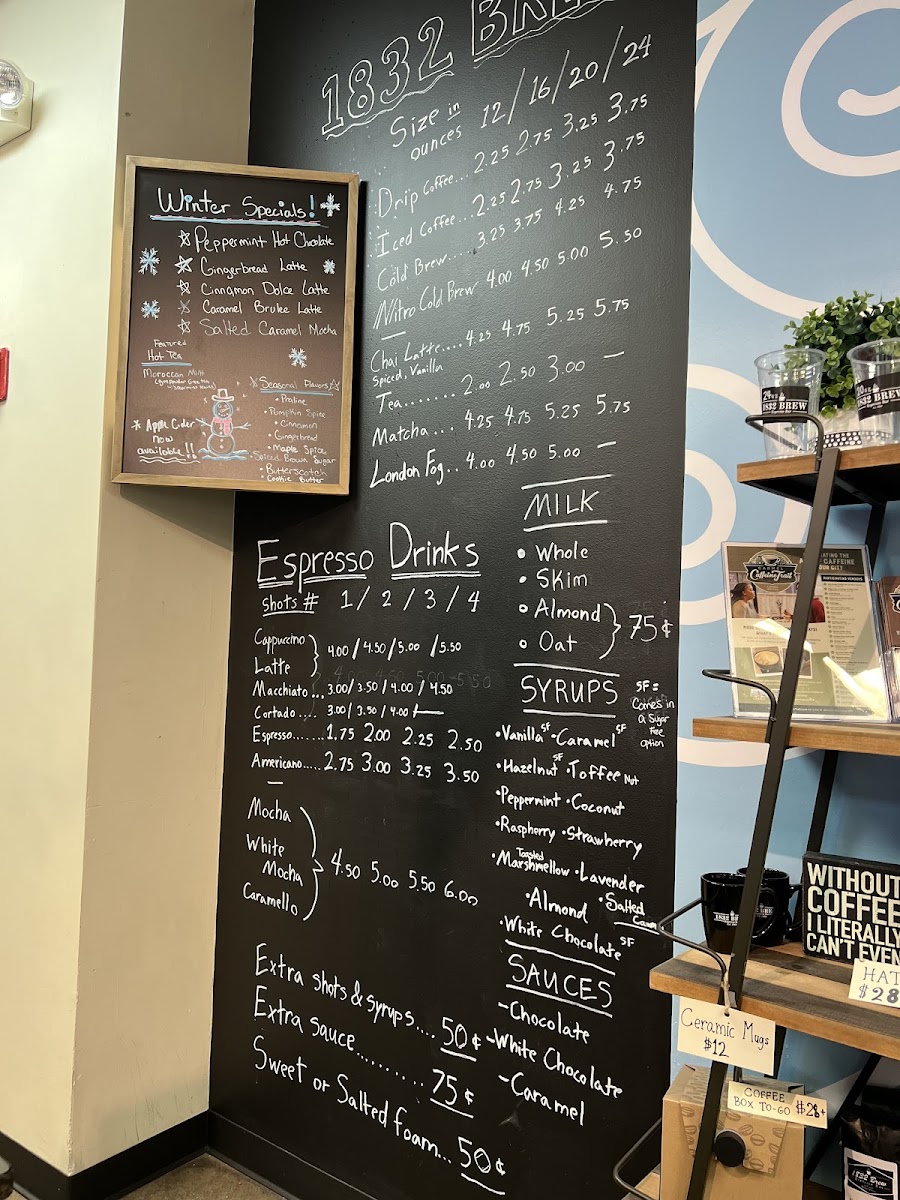 1832 BRE
Size in ounces 12/16/20/24
Drip Coffee... 2.25 2.75 3.25 3.75
Iced Coffee... 2.25 2.75 3.25 3.75
Cold Brew.... 3.25 3.75 4.25 4.75
Nitro Cold Brew 4.00 4.50 5.00 5.50
Chai Latte.... 4.25 4.75 5.25 5.75
Spiced, Vanilla
Tea........ 2.00 2.50 3.00 —
Matcha.... 4.25 4.75 5.25 5.75
London Fog.. 4.00 4.50 5.00 —
Winter Specials!
Peppermint Hot Chocolate
Gingerbread Latte
Cinnamon Dolce Latte
Caramel Brulee Latte
Salted Caramel Mocha
Featured
Hot Tea
Moroccan Mint
* Apple Cider
now
available!!
Seasonal Flavors
• Praline
• Pumpkin Spice
• Cinnamon
• Gingerbread
• Maple Spice
• Spiced Brown Sugar
• Butterscotch
• Cookie Butter
Espresso Drinks
shots # 1/2/3/4
Cappuccino
Latte
4.00/4.50/5.00/5.50
Macchiato... 3.00/3.50/4.00/4.50
Cortado.... 3.00/3.50/4.00/—
Espresso...... 1.75 2.00 2.25 2.50
Americano..... 2.75 3.00 3.25 3.50
Mocha
White
Mocha
Caramello
4.50 5.00 5.50 6.00
Extra shots & syrups.... 50¢
Extra sauce.......... 75¢
Sweet or Salted foam... 50¢
MILK
• Whole
• Skim
• Almond
• Oat
75¢
SYRUPS
SF =
Comes in
a Sugar
Free
option
• Vanilla SF • Caramel SF
• Hazelnut SF • Toffee Nut
• Peppermint • Coconut
• Raspberry • Strawberry
• Toasted Marshmellow • Lavender
• Almond • Salted Caram
• White Chocolate SF
SAUCES
- Chocolate
- White Chocolate
- Caramel
24oz
1832 BREW
20oz
1832 BREW
Caffeine Trail
1832 BREW
WITHOUT
COFFEE
I LITERALLY
CAN'T EVEN
HAT
$28
Ceramic Mugs
$12
COFFEE
BOX TO-GO $28+
1832 Brew